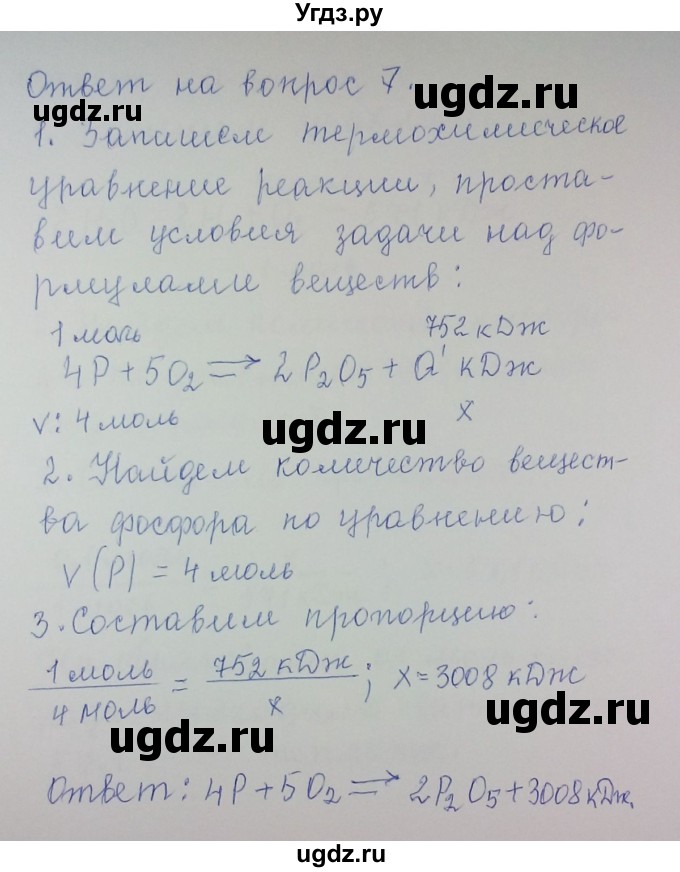 Угдз.ру
Ответ на вопрос 7.
ugdz.ru ugdz.ru
1. Запишем термохимическое
уравнение реакции, проста-
вим условия задачи над фо-
рмулами веществ:
1 моль 752 кДж
4P + 5O₂ ⇒ 2P₂O₅ + Q' кДж
ν: 4 моль x
ugdz.ru
2. Найдем количество вещест-
ва фосфора по уравнению:
ν(P) = 4 моль
3. Составим пропорцию:
1 моль / 4 моль = 752 кДж / x ; x = 3008 кДж
ugdz.ru ugdz.ru
Ответ: 4P + 5O₂ ⇒ 2P₂O₅ + 3008 кДж.
ugdz.ru